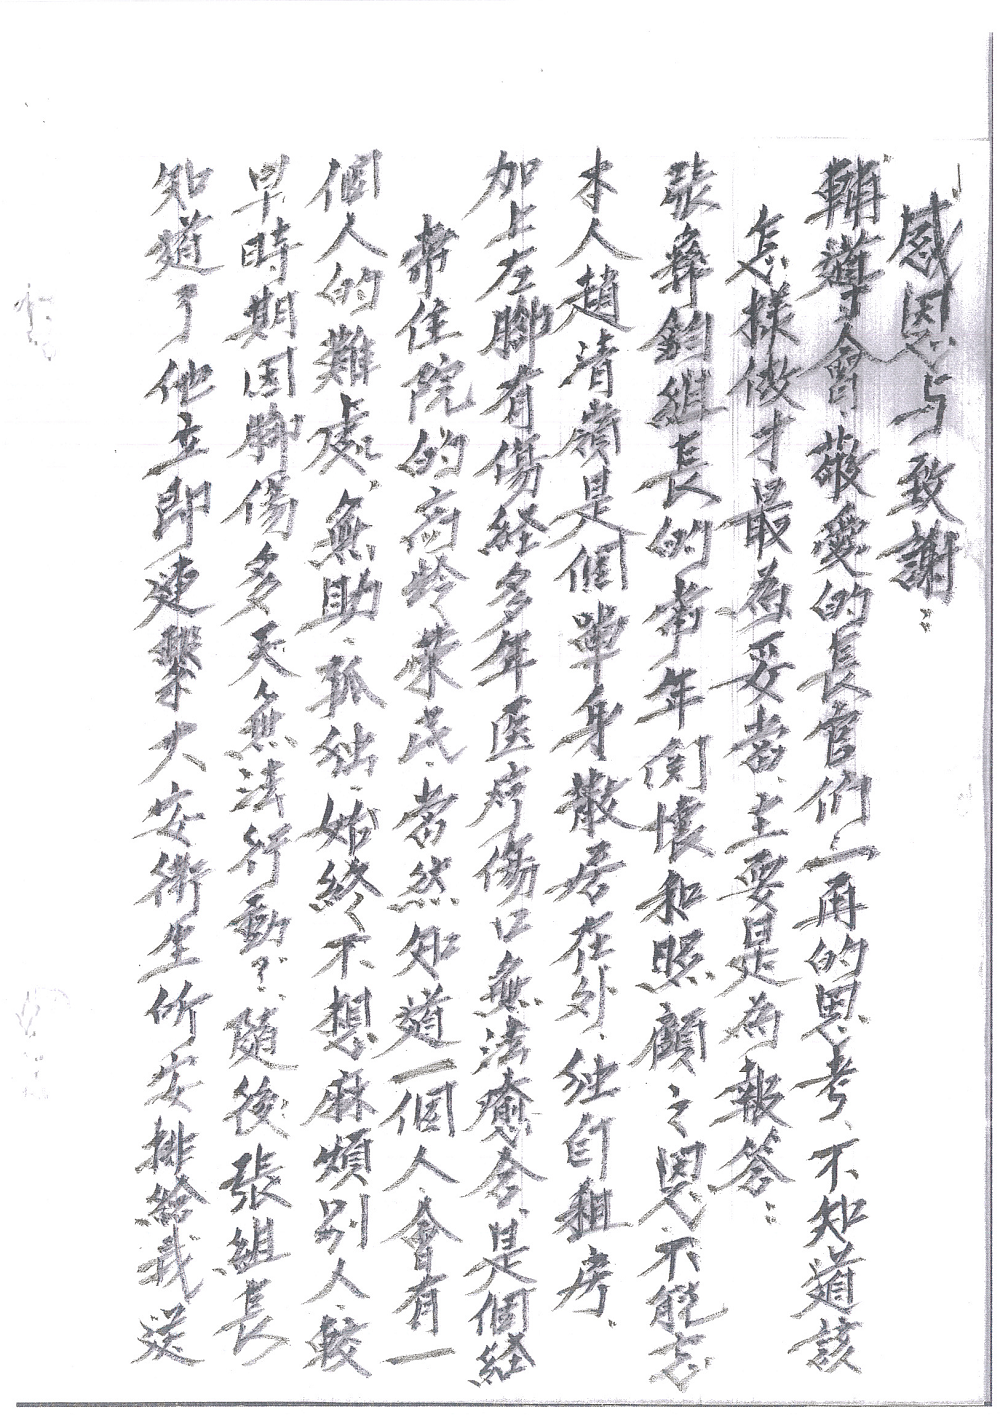 感恩与致謝：
輔導會、敬愛的長官們、一再的思考、不知道該
怎樣做才最為妥當、主要是為報答：
張彝鈞組長的常年関懷和照顧之恩、不能忘
本人趙清嶺是個單身散居在外、独自租房、
加上左腳有傷経多年医疗傷口無法癒合、是個経
常住院的高龄荣民、當然知道一個人、會有一
個人的難處、無助、孤独、始終不想麻煩別人、較
早時期因腳傷多天無法行動了、隨後張組長
知道了他立即連繫大安衛生所安排給我送